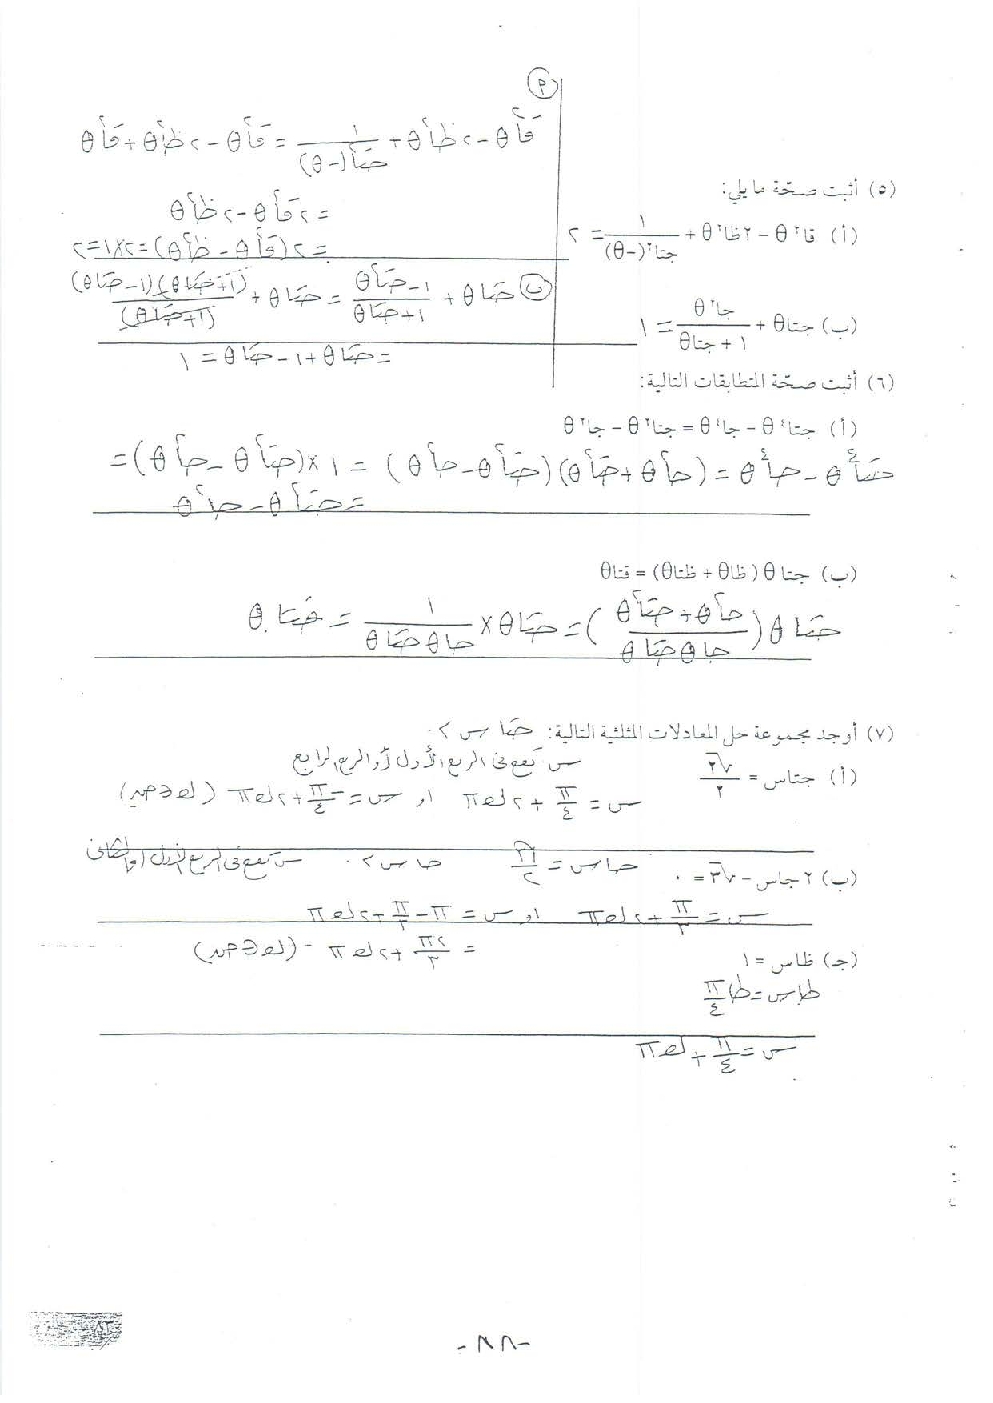 (٥) أثبت صحّة ما يلي:
(أ) قا٢θ − ٢ظا٢θ + ١/جتا٢(−θ) = ٢
(أ)
قا٢θ − ٢ظا٢θ + ١/جتا٢(−θ) = قا٢θ − ٢ظا٢θ + قا٢θ
= ٢قا٢θ − ٢ظا٢θ
= ٢(قا٢θ − ظا٢θ) = ٢×١ = ٢
(ب) جتاθ + جا٢θ/(١ + جتاθ) = ١
(ب) جتاθ + (١ − جتا٢θ)/(١ + جتاθ) = جتاθ + (١ + جتاθ)(١ − جتاθ)/(١ + جتاθ)
= جتاθ + ١ − جتاθ = ١
(٦) أثبت صحّة المتطابقات التالية:
(أ) جتا٤θ − جا٤θ = جتا٢θ − جا٢θ
جتا٤θ − جا٤θ = (جا٢θ + جتا٢θ)(جتا٢θ − جا٢θ) = ١×(جتا٢θ − جا٢θ) =
= جتا٢θ − جا٢θ
(ب) جتاθ (ظاθ + ظتاθ) = قتاθ
جتاθ ((جا٢θ + جتا٢θ)/(جاθ جتاθ)) = جتاθ × ١/(جاθ جتاθ) = قتاθ.
(٧) أوجد مجموعة حل المعادلات المثلثية التالية: جتا س >٠
(أ) جتاس = √٢/٢
س تقع في الربع الأول أو الربع الرابع
س = π/٤ + ٢ك π أو س = −π/٤ + ٢ك π (ك ∈ صـ)
(ب) ٢جاس − √٣ = ٠
جا س = √٣/٢ جا س >٠ س تقع في الربع الأول أو الثاني
س = π/٣ + ٢ك π أو س = π − π/٣ + ٢ك π
= ٢π/٣ + ٢ك π - (ك ∈ صـ)
(جـ) ظاس = ١
ظا س = ظا π/٤
س = π/٤ + ك π